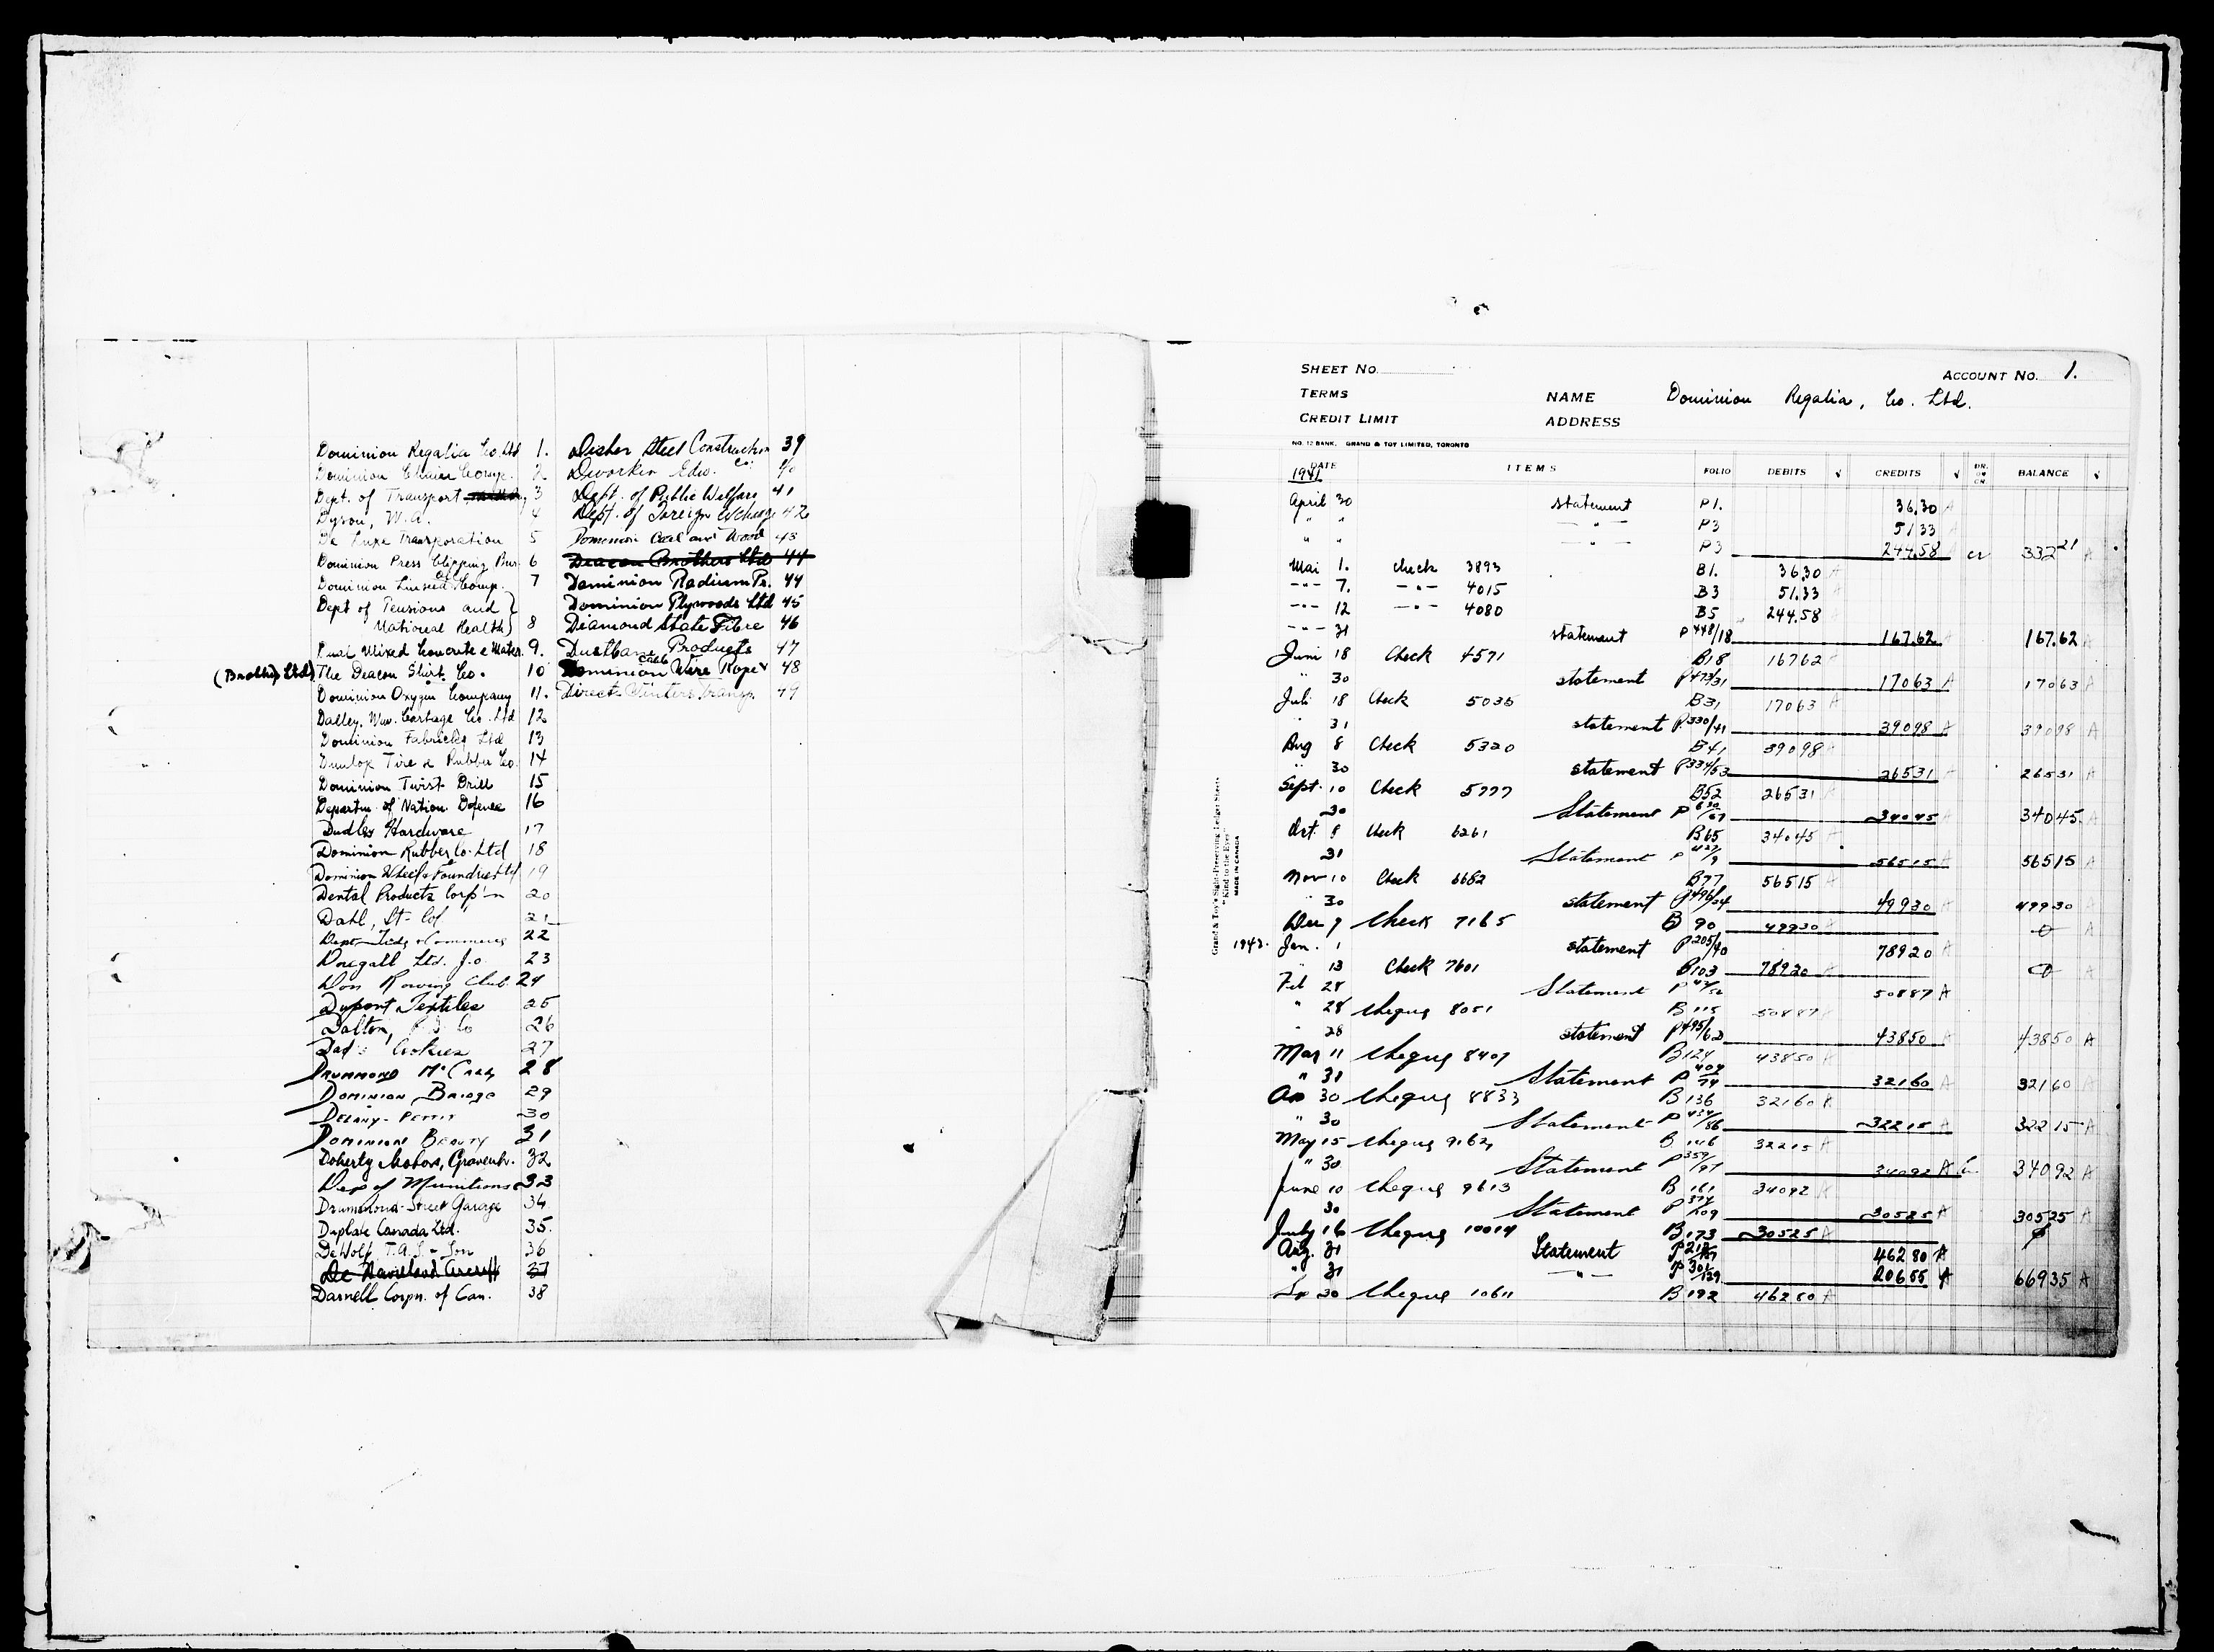 Dominion Regalia Co. Ltd 1.
Dominion 2
Dept. of Transport 3
Dyson, W.A. 4
De Luxe Transporation 5
Dominion Press Clipping Bur. 6
Dominion Linseed Oil Comp. 7
Dept of Pensions and }
National Health } 8
Mixed Concrete & Mater. 9.
(Brothers Ltd) The Deacon Shirt Co. 10
Dominion Oxygen Company 11.
Dalley, Wm. Cartage Co. Ltd 12
Dominion Fabrics Ltd 13
Dunlop Tire & Rubber Co. 14
Dominion Twist Drill 15
Departm. of Nation Defence 16
Dudley Hardware 17
Dominion Rubber Co. Ltd 18
Dominion Wheel & Foundries Ltd 19
Dental Products Corp'n 20
Dahl, Lt-Col 21
Dept Trade & Commerce 22
Dougall Ltd. J.O. 23
Don Rowing Club 24
Dupont Textiles 25
Dalton, Co 26
Dad's Cookies 27
Drummond McCall 28
Dominion Bridge 29
Delany-Pettit 30
Dominion Beauty 31
Doherty Motors, Gravenh. 32
Dep of Munitions 33
Drummond Street Garage 34
Duplate Canada Ltd. 35.
DeWolf, T.A.S. & Son 36
De Havilland Aircraft 37
Darnell Corpn. of Can. 38
Disher Steel Construction Co. 39
Dworkin Edw. 40
Dept. of Public Welfare 41
Dept. of Foreign Exchange 42
Dominion Coal and Wood 43
Deacon Brothers Ltd 44
Dominion Radium Pr. 44
Dominion Plywoods Ltd 45
Diamond State Fibre 46
Dustbane Products 47
Dominion Wire Rope & Cable 48
Direct Winters Transp. 49
SHEET No. ACCOUNT No. 1.
TERMS NAME Dominion Regalia, Co. Ltd.
CREDIT LIMIT ADDRESS
NO. 12 BANK. GRAND & TOY LIMITED, TORONTO
DATE ITEMS FOLIO DEBITS √ CREDITS √ DR. OR CR. BALANCE √
1941
April 30 statement P1. 36.30 A
" " — " — P3 51.33 A
" " — " — P3 244.58 A cr 332 21 A
Mai 1. check 3893 B1. 36.30 A
-"- 7. -"- 4015 B3 51.33 A
-"- 12 -"- 4080 B5 244.58 A
-"- 31 statement P448/18 167.62 A 167.62 A
Juni 18 Check 4571 B18 16762 A
" 30 statement P473/31 17063 A 17063 A
Juli 18 Check 5035 B31 17063 A
" 31 statement P330/41 39098 A 39098 A
Aug 8 Check 5320 B41 39098 A
" 30 statement P334/53 26531 A 26531 A
Sept. 10 Check 5777 B52 26531 A
30 Statement 34045 A 34045 A
Oct. 8 Check 6261 B65 34045 A
31 Statement 56515 A 56515 A
Nov 10 Check 6682 B77 56515 A
" 30 statement 49930 A 49930 A
Dec 9 Check 7165 B 90 49930 A 0 A
1942. Jan. 1 statement P205/40 78920 A
" 13 Check 7601 B103 78920 A 0 A
Feb 28 Statement 50887 A
" 28 Cheque 8051 B 115 50887 A
" 28 statement P495/62 43850 A 43850 A
Mar 11 Cheque 8407 B124 43850 A
" 31 Statement P404/74 32160 A 32160 A
Ap 30 Cheque 8833 B136 32160 A
" 30 Statement P434/86 32215 A 32215 A
May 15 Cheque 9162 B 146 32215 A
" 30 Statement P359/97 34092 A Cr 34092 A
June 10 Cheque 9613 B 161 34092 A
30 Statement P374/109 30525 A 30525 A
July 16 Cheque 10014 B173 30525 A 0
Aug. 31 Statement 46280 A
" 31 — " — P301/129 20655 A 66935 A
Sp 30 Cheque 10611 B 192 46280 A
Grand & Toy's Sight-Preserving Ledger Sheet
"Kind to the Eyes"
MADE IN CANADA